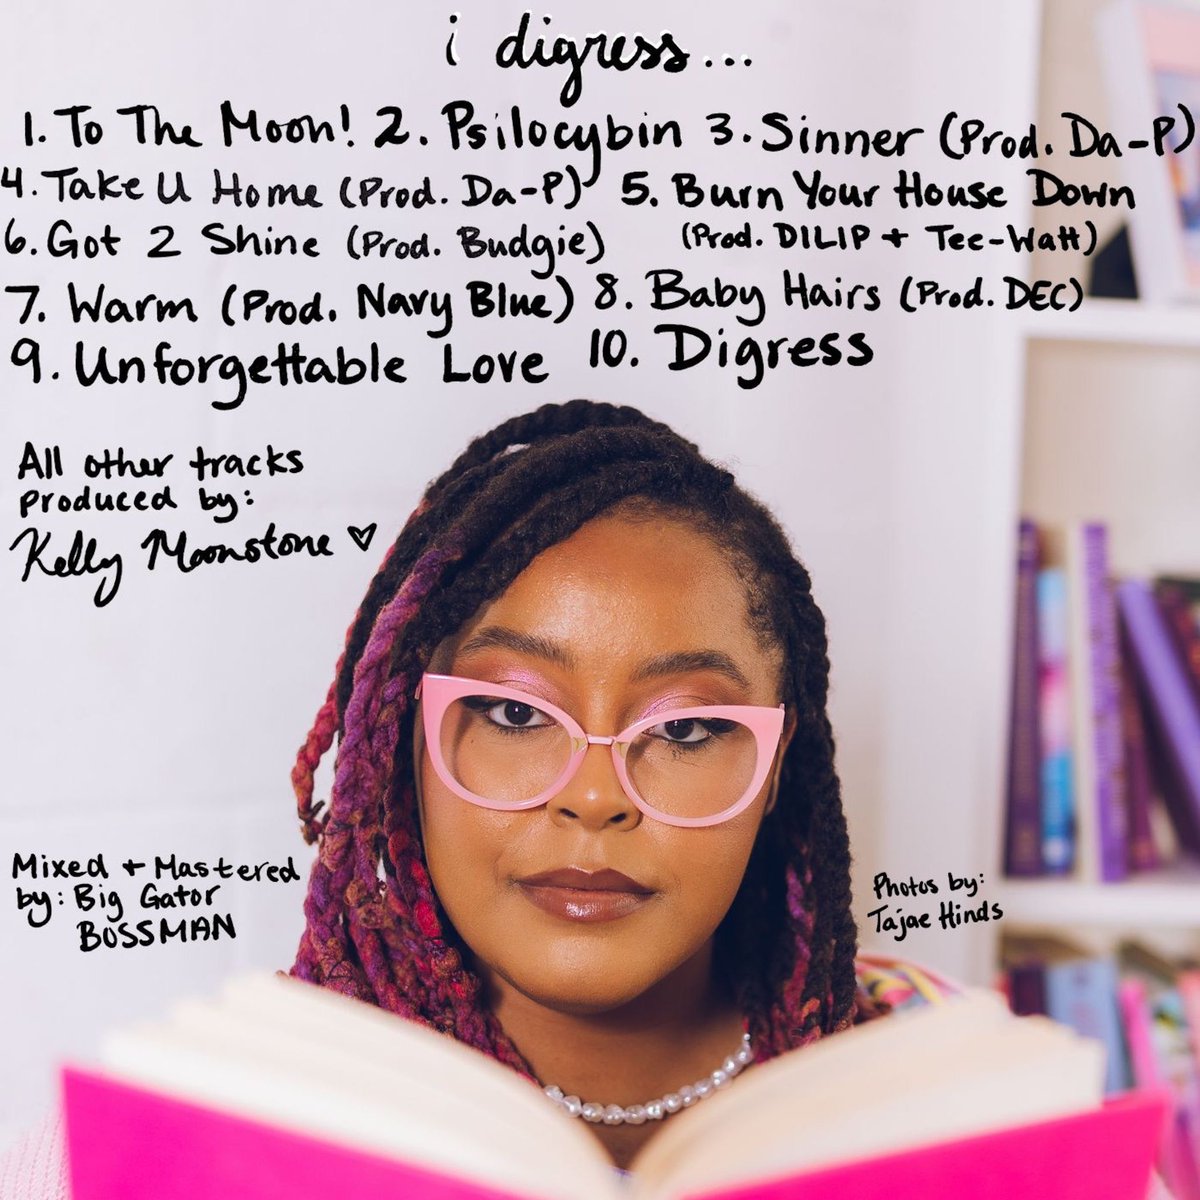 i digress...
1. To The Moon! 2. Psilocybin 3. Sinner (Prod. Da-P)
4. Take U Home (Prod. Da-P) 5. Burn Your House Down
(Prod. DILIP + Tee-Watt)
6. Got 2 Shine (Prod. Budgie)
7. Warm (Prod. Navy Blue) 8. Baby Hairs (Prod. DEC)
9. Unforgettable Love 10. Digress
All other tracks
produced by:
Kelly Moonstone ♡
Mixed + Mastered
by: Big Gator
BOSSMAN
Photos by:
Tajae Hinds